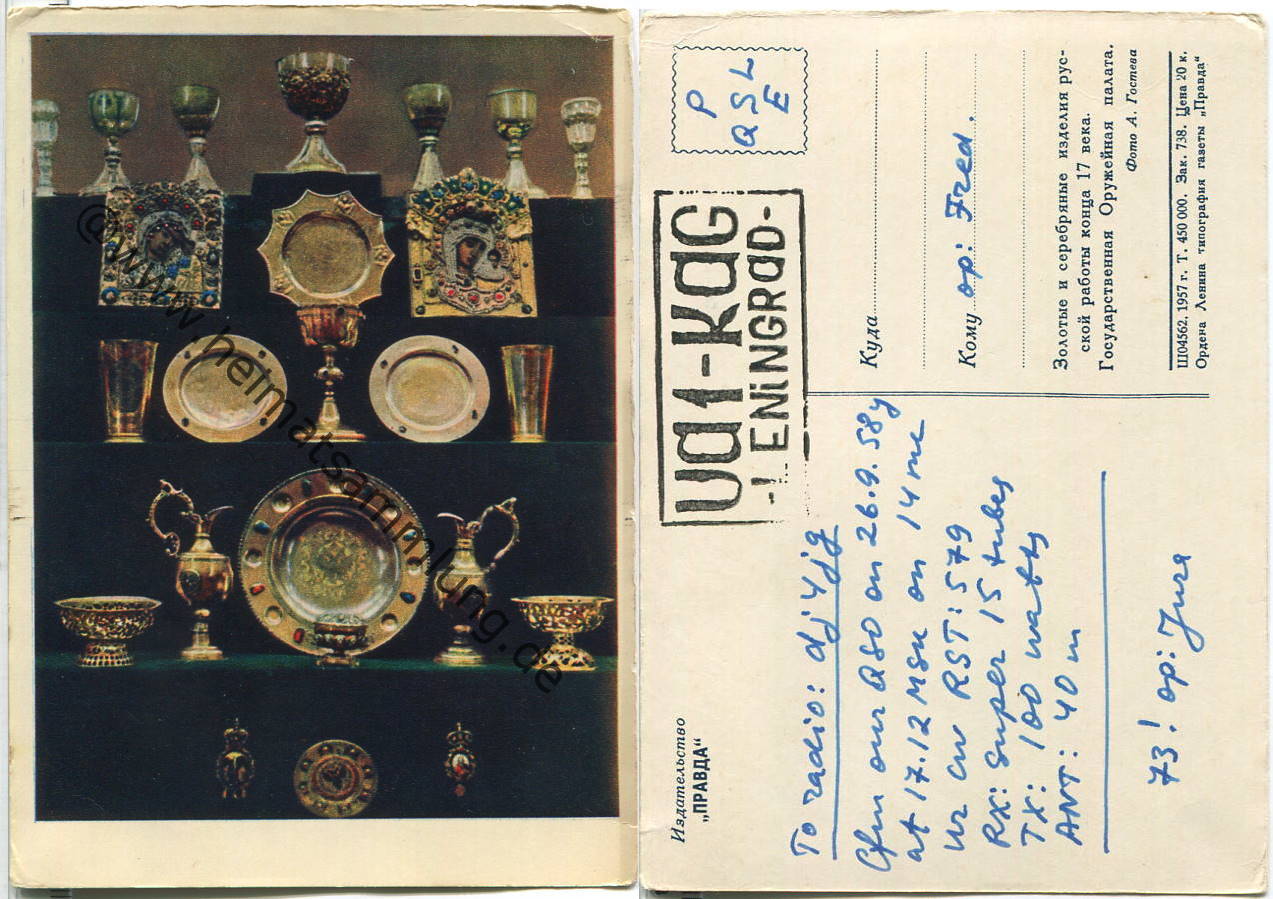 @www.heimatsammlung.de
Издательство
„ПРАВДА“
UA1-KAG
-LENiNGRAD-
P
QSL
E
To radio: dj4jg
Cfm our QSO on 26.9.58y
at 17.12 Msk on 14 mc
Ur cw RST: 579
RX: Super 15 tubes
TX: 100 watts
ANT: 40 m
73! op: Jura
Куда
Кому op: Fred.
Золотые и серебряные изделия рус-
ской работы конца 17 века.
Государственная Оружейная палата.
Фото А. Гостева
Ш04562. 1957 г. Т. 450 000. Зак. 738. Цена 20 к.
Ордена Ленина типография газеты „Правда“